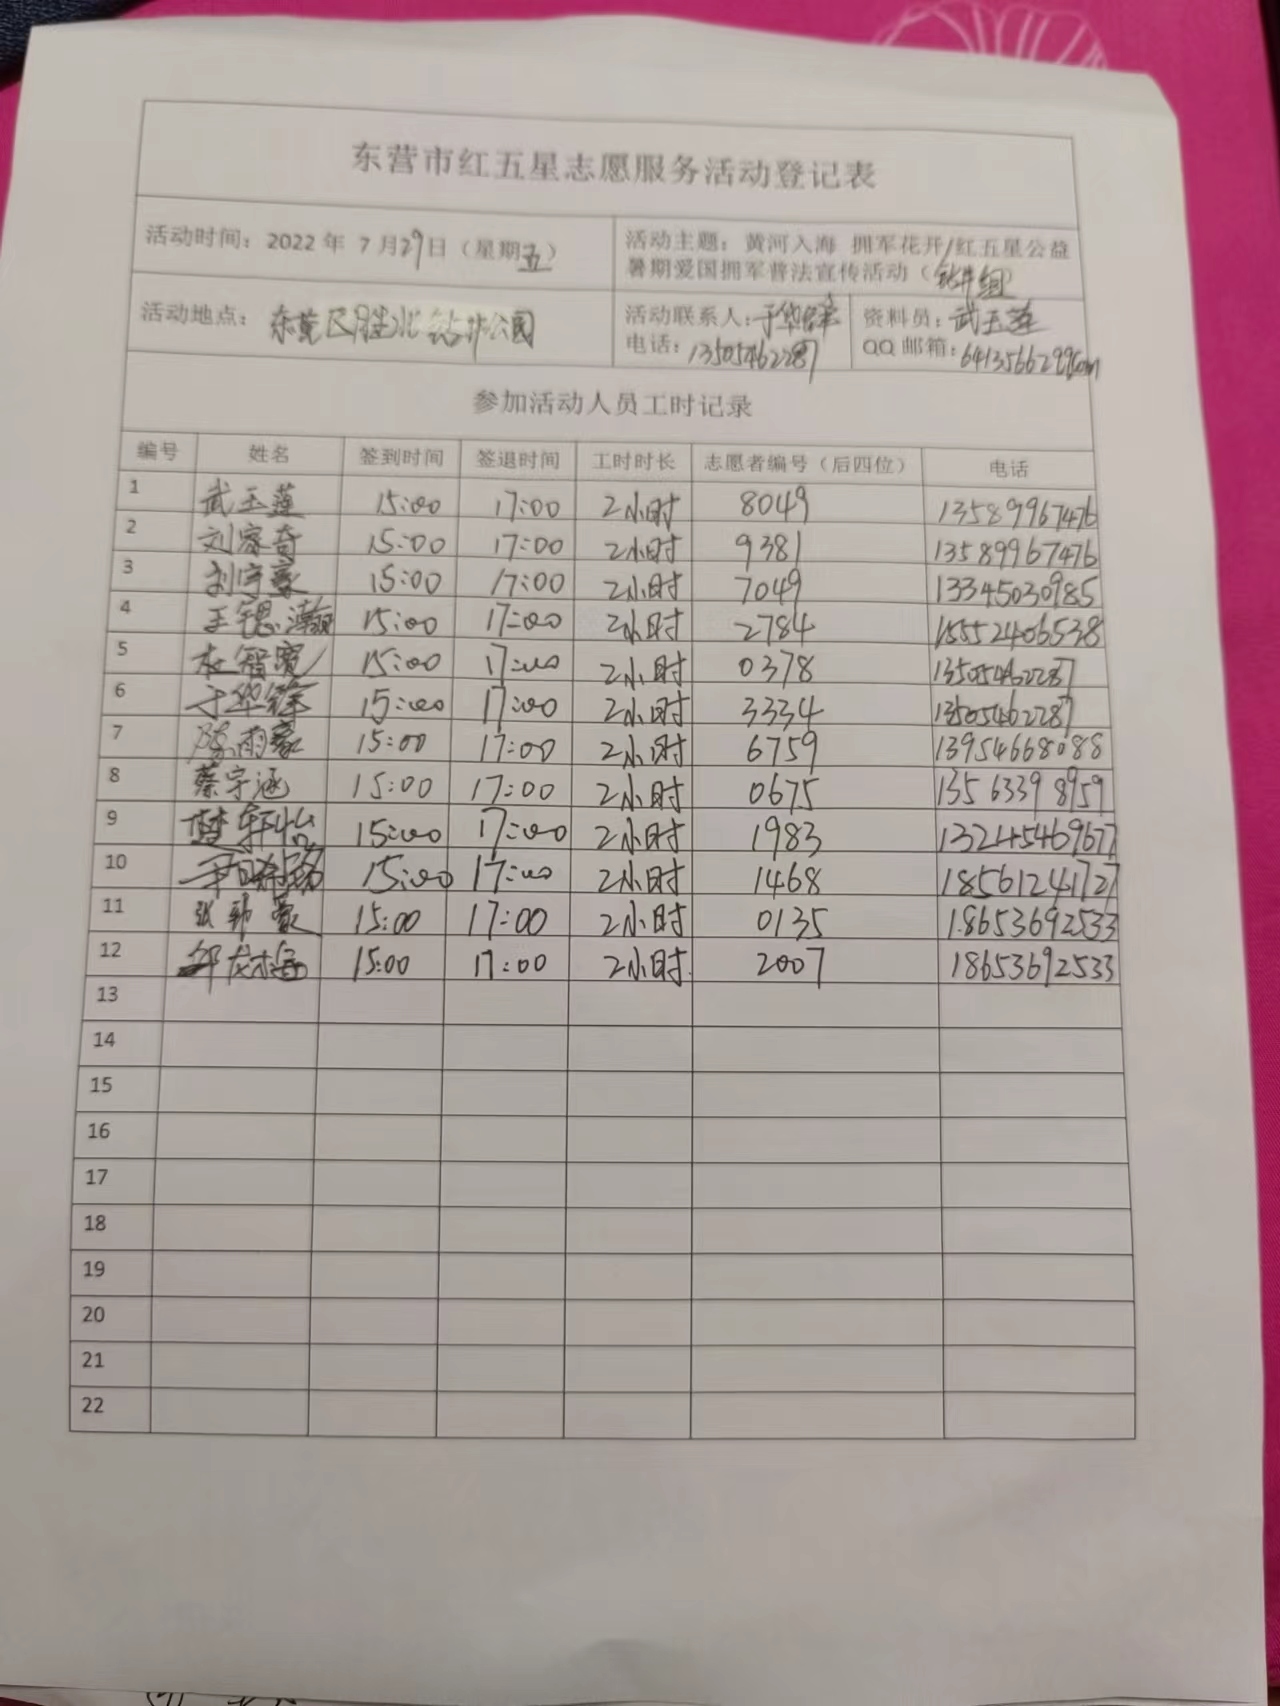 东营市红五星志愿服务活动登记表
活动时间：2022年 7月29日（星期五）
活动主题：黄河入海 拥军花开/红五星公益
暑期爱国拥军普法宣传活动（钻井组）
活动地点： 东营区胜北钻井公园
活动联系人：于华锋
电话：13505462287
资料员：武玉莲
QQ邮箱：
参加活动人员工时记录
编号 姓名 签到时间 签退时间 工时时长 志愿者编号（后四位） 电话
1 武玉莲 15:00 17:00 2小时 8049 13589967476
2 刘睿奇 15:00 17:00 2小时 9381 13589967476
3 刘宇豪 15:00 17:00 2小时 7049 13345030985
4 王锶灏 15:00 17:00 2小时 2784 15552406538
5 杜智宽 15:00 17:00 2小时 0378 13505462287
6 于华锋 15:00 17:00 2小时 3334 13505462287
7 陈雨豪 15:00 17:00 2小时 6759 13954668088
8 蔡宇涵 15:00 17:00 2小时 0675 13563398959
9 楚轩怡 15:00 17:00 2小时 1983 13245469677
10 15:00 17:00 2小时 1468 18561241727
11 张韩豪 15:00 17:00 2小时 0135 18653692533
12 15:00 17:00 2小时 2007 18653692533
13
14
15
16
17
18
19
20
21
22